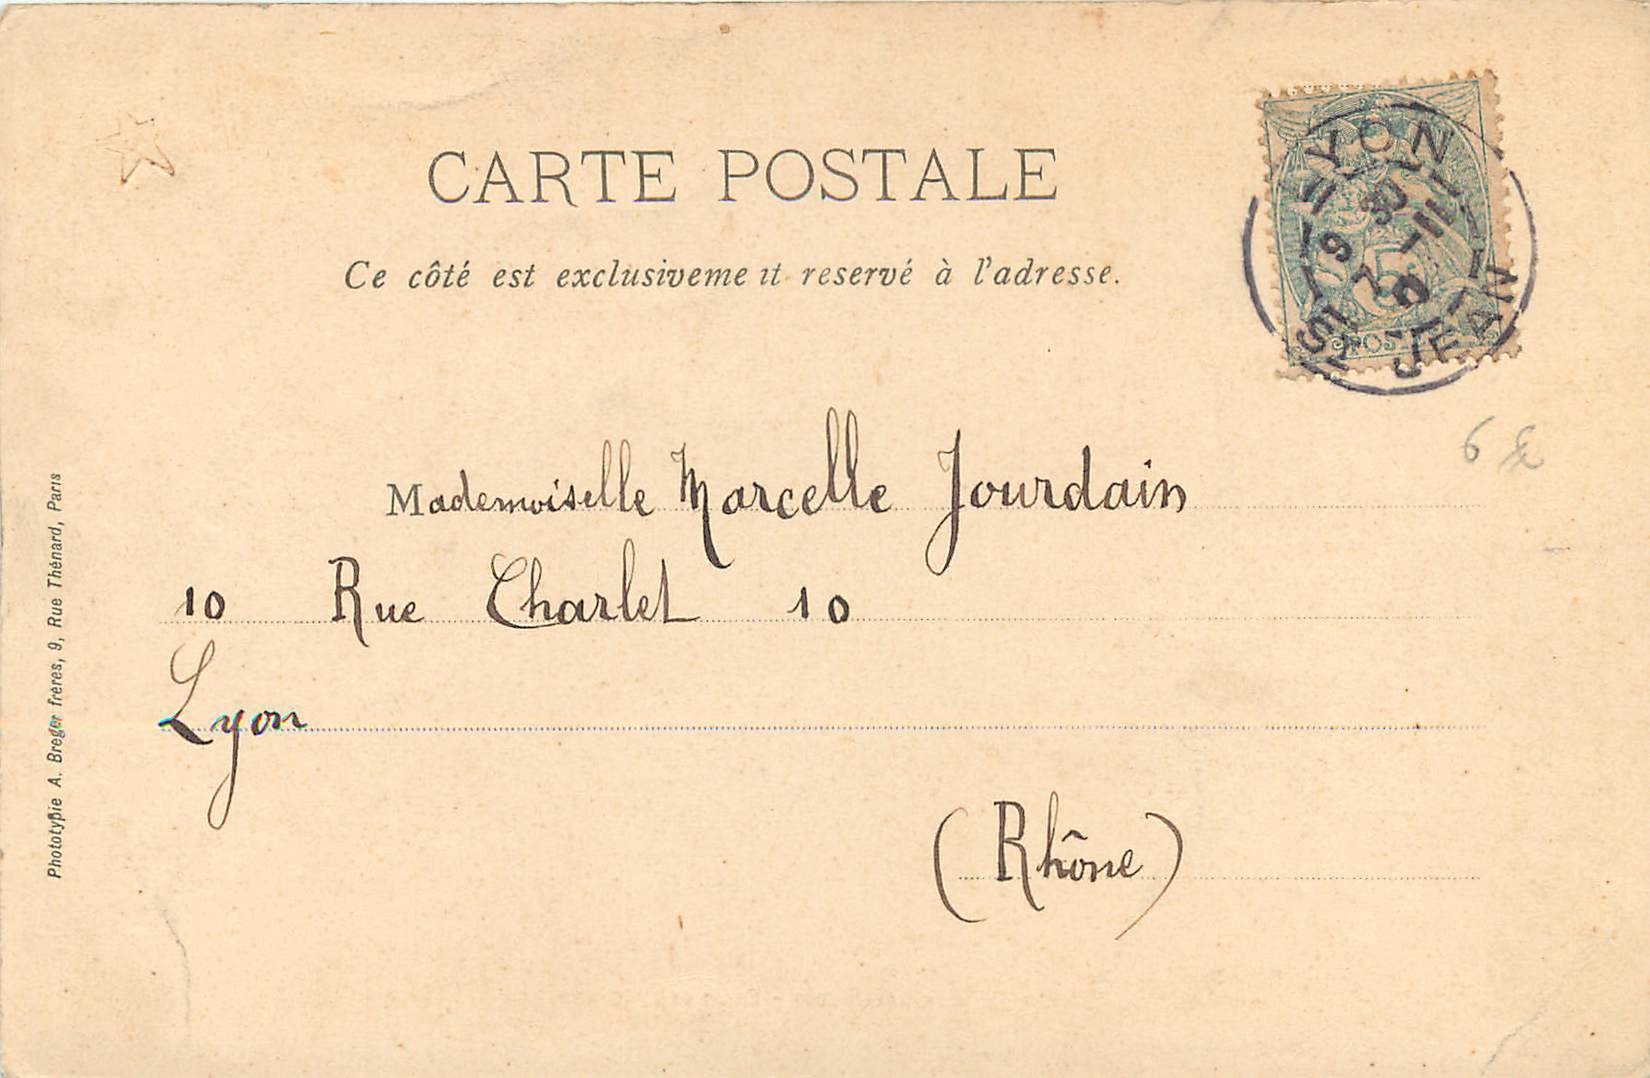 CARTE POSTALE
Ce côté est exclusivement reservé à l'adresse.
LYON
ST JEAN
5
POSTES
6 €
Mademoiselle Marcelle Jourdain
10 Rue Charlet 10
Lyon
(Rhône)
Phototypie A. Breger frères, 9, Rue Thénard, Paris